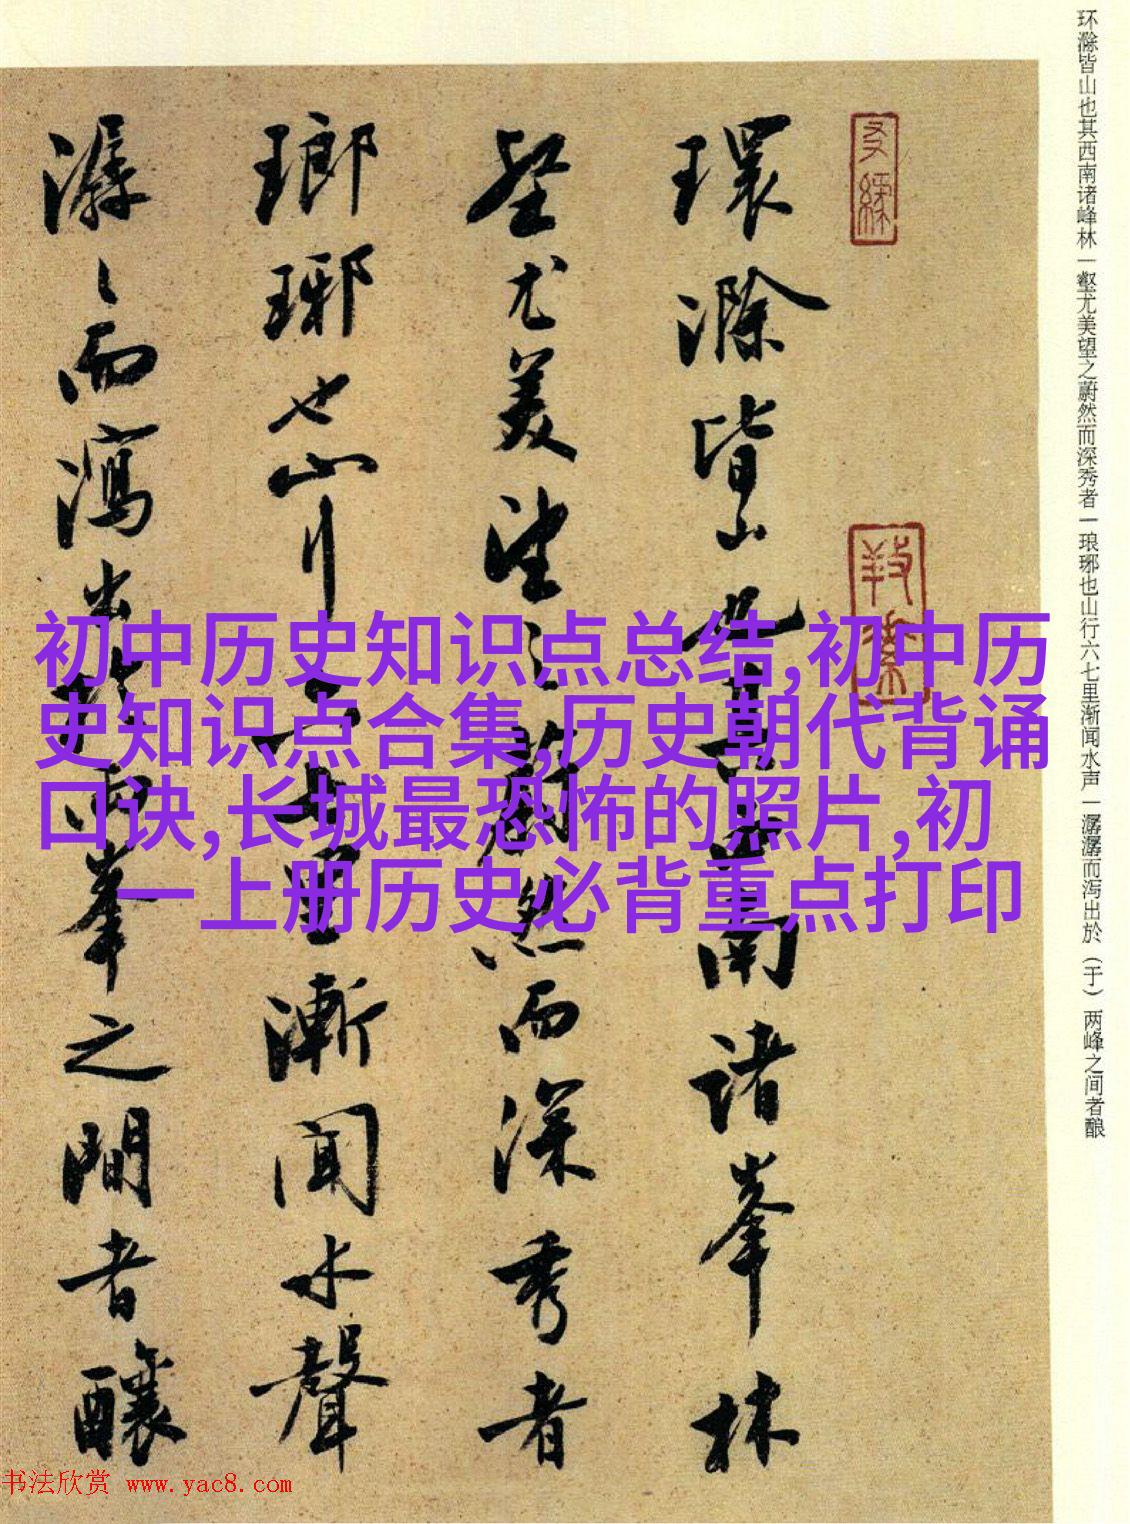 环滁皆山也其西南诸峰林一壑尤美望之蔚然而深秀者一琅琊也山行六七里渐闻水声一潺潺而泻出於（于）两峰之间者酿
環滁皆山也其西南諸峯林
壑尤美望之蔚然而深秀者
瑯琊也山行六七里漸聞水聲
潺々而瀉出於兩峯之間者釀
初中历史知识点总结,初中历
史知识点合集,历史朝代背诵
口诀,长城最恐怖的照片,初
一上册历史必背重点打印
书法欣赏 www.yac8.com